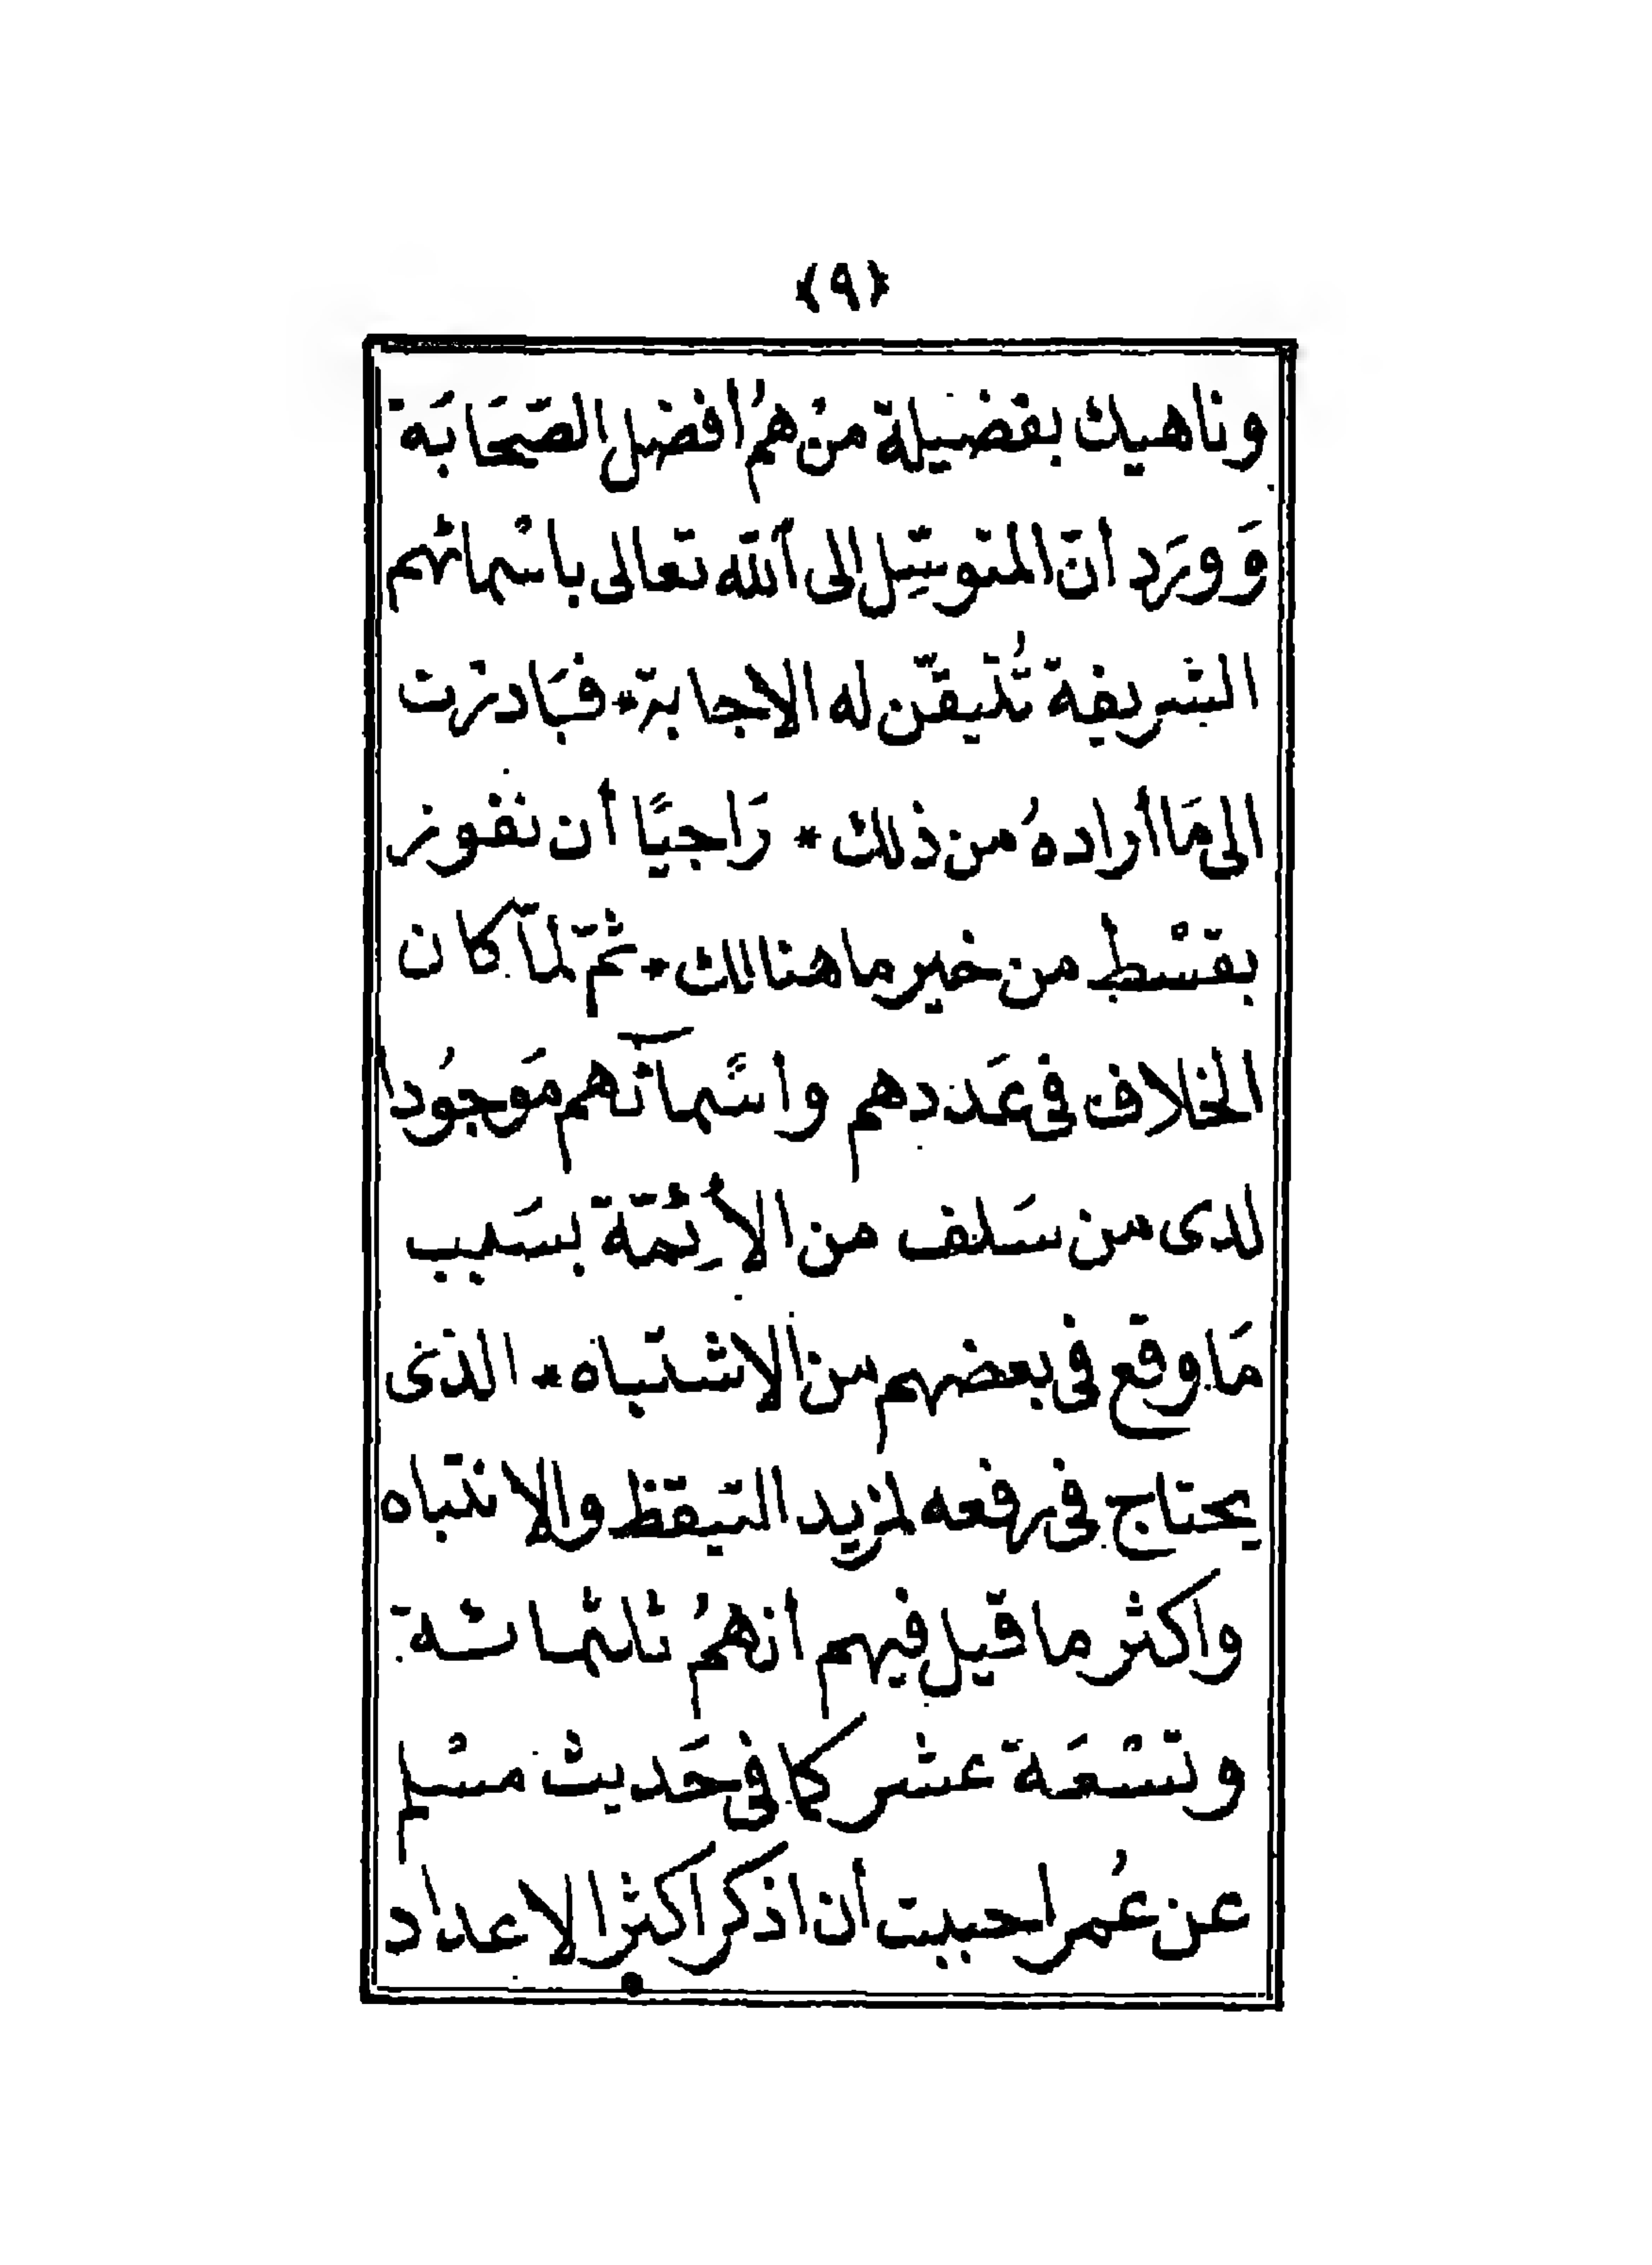 ﴿٩﴾
وناهيك بفضيلة منْ همُ أفضل الصّحَابَة
وَورَد انّ المتوسّل إلى ألله تعالى باسْمائهم
الشريفة تُتيقّن له الاجابة * فبَادرْت
الى مَا أراده من ذلك * رَاجيًا أن نفوز
بقسْط من خير ما هنالك * ثمّ لمآ كان
الخلاف فى عَددهم وأسْمائهم مَوجُودا
لدى من سَلف من الأئِمّة بسَبب
مَا وقع فى بعضهم من الاشتباه * الذى
يحتاج فى رفعه لمزيد التيقظ والانتباه
واكثر ما قيل فيهم أنهمُ ثلثمائة
وتسْعَة عشر كما فى حَديث مسْلم
عن عُمر احببت أن اذكر اكثر الاعداد